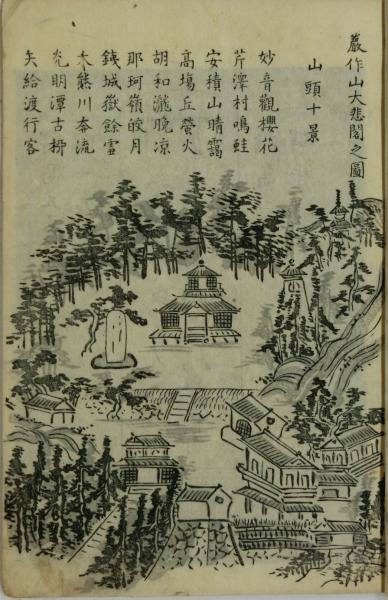 巖作山大悲閣之圖
山頭十景
妙音觀櫻花
芹澤村鳴蛙
安積山晴靄
高塲丘螢火
胡和瀧晩凉
耶珂嶺皎月
銕城嶽餘雪
木熊川奔流
光明潭古柳
矢給渡行客